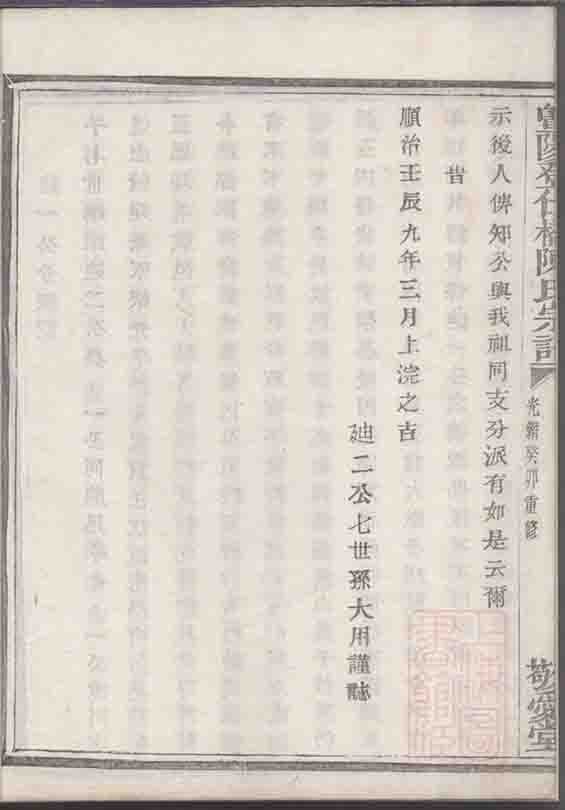 陳氏宗譜
光緒癸卯重修
敬愛堂
示後人俾知公與我祖同支分派有如是云爾
昔
順治壬辰九年三月上浣之吉
迪二公七世孫大用謹誌